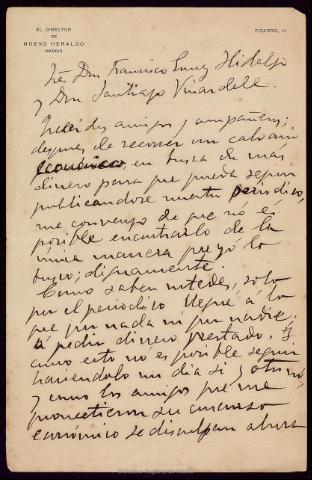 EL DIRECTOR
DE
NUEVO HERALDO
MADRID
PIZARRO, 14
Sres Don Francisco Gomez Hidalgo
y Don Santiago Vinardell.
Queridos amigos y compañeros;
despues de recorrer un calvario
económico, en busca de mas
dinero para que pueda seguir
publicandose nuestro periodico,
me convenzo de que no es
posible encontrarlo de la
unica manera que yo lo
busco; dignamente.
Como saben ustedes, solo
por el periodico llegué á lo
que por nada ni por nadie:
á pedir dinero prestado. Y
como esto no es posible seguir
haciendolo un dia si y otro no,
y como los amigos que me
prometieron su concurso
económico se disculpan ahora